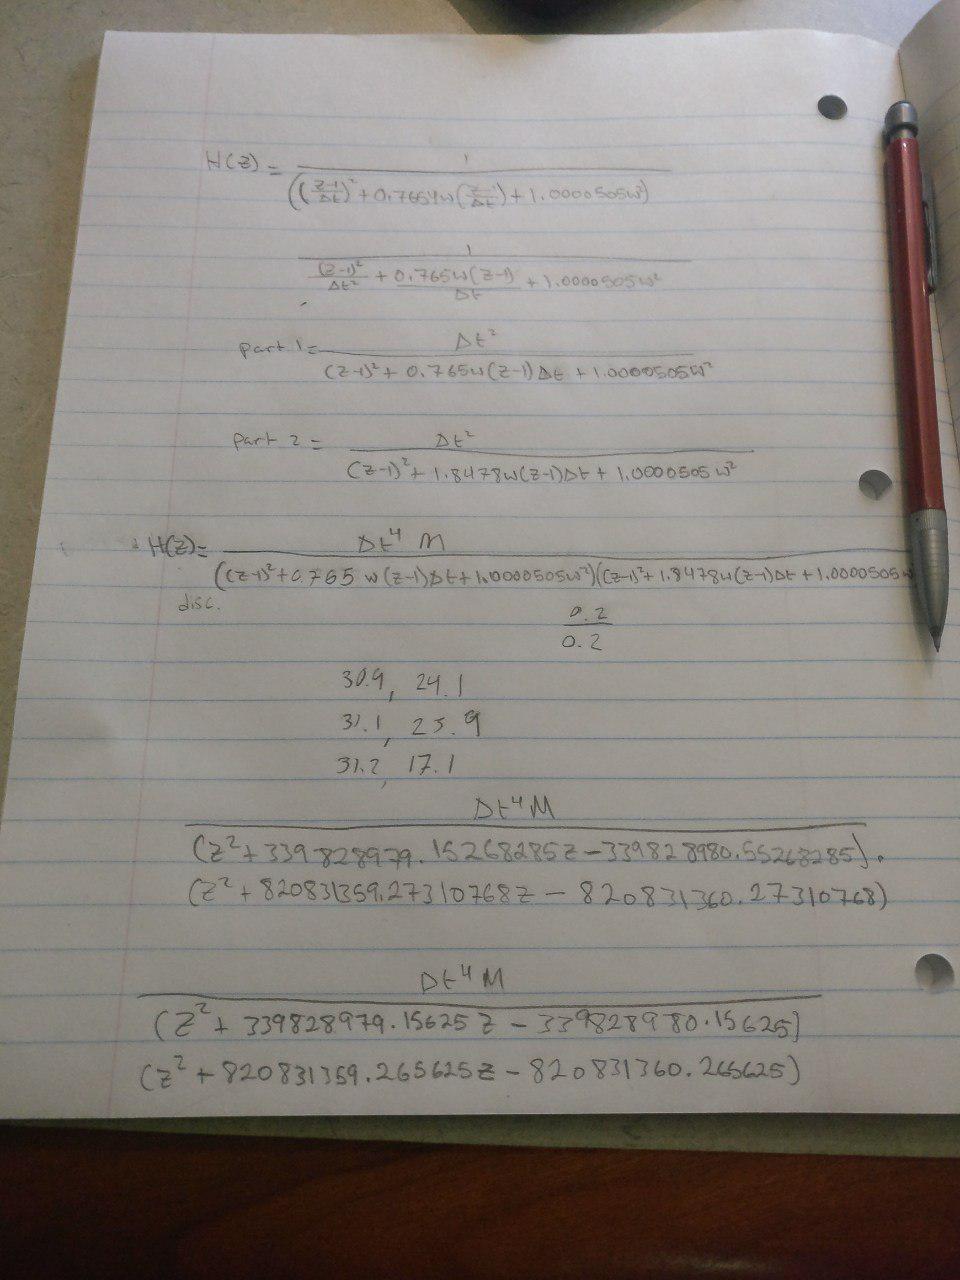 H(z) = 1 / (((z-1)/Δt)² + 0.7654w((z-1)/Δt) + 1.0000505w²)
1 / ((z-1)²/Δt² + 0.765w(z-1)/Δt + 1.0000505w²)
part 1 = Δt² / ((z-1)² + 0.765w(z-1)Δt + 1.0000505w²)
part 2 = Δt² / ((z-1)² + 1.8478w(z-1)Δt + 1.0000505w²)
H(z) = Δt⁴ M / (((z-1)² + 0.765 w(z-1)Δt + 1.0000505w²)((z-1)² + 1.8478w(z-1)Δt + 1.0000505w
disc.
0.2
0.2
30.9, 24.1
31.1, 25.9
31.2, 17.1
Δt⁴M
(z² + 339828979.15268285z - 339828980.55268285).
(z² + 820831359.27310768z - 820831360.27310768)
Δt⁴M
(z² + 339828979.15625z - 339828980.15625)
(z² + 820831359.265625z - 820831360.265625)